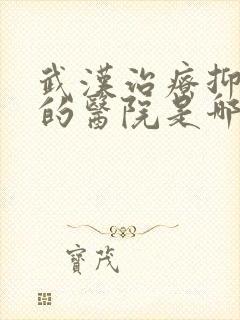 武漢治療抑
的醫院是哪
寶茂